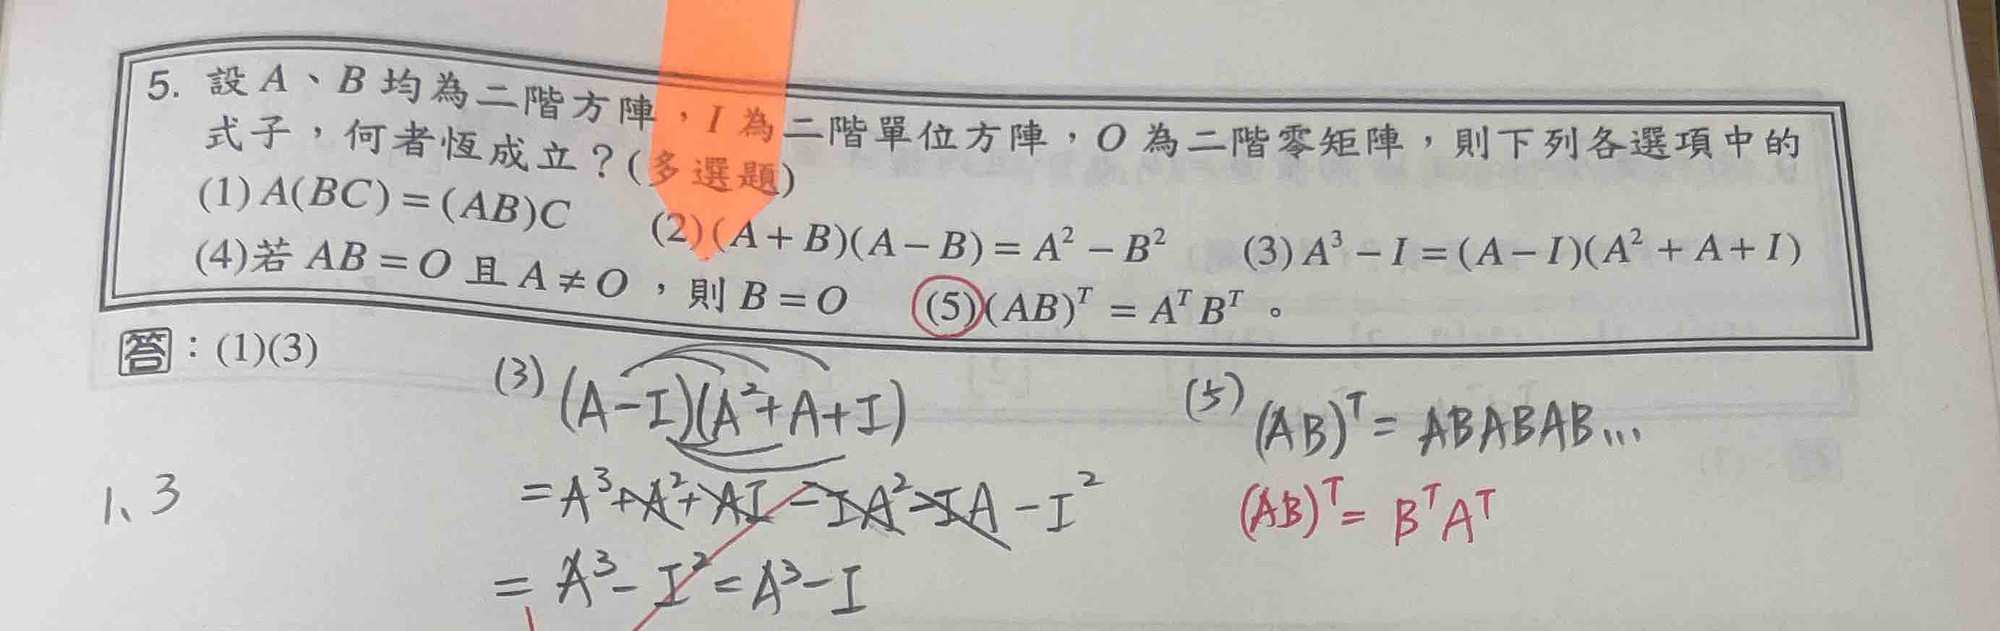 5. 設 A、B 均為二階方陣，I 為二階單位方陣，O 為二階零矩陣，則下列各選項中的
式子，何者恆成立？(多選題)
(1) A(BC) = (AB)C (2) (A + B)(A − B) = A² − B² (3) A³ − I = (A − I)(A² + A + I)
(4) 若 AB = O 且 A ≠ O，則 B = O (5) (AB)ᵀ = AᵀBᵀ。
答：(1)(3)
(3) (A−I)(A²+A+I)
= A³+A²+AI−IA²−IA−I²
= A³−I²=A³−I
(5) (AB)ᵀ= ABABAB...
(AB)ᵀ= BᵀAᵀ
1、3